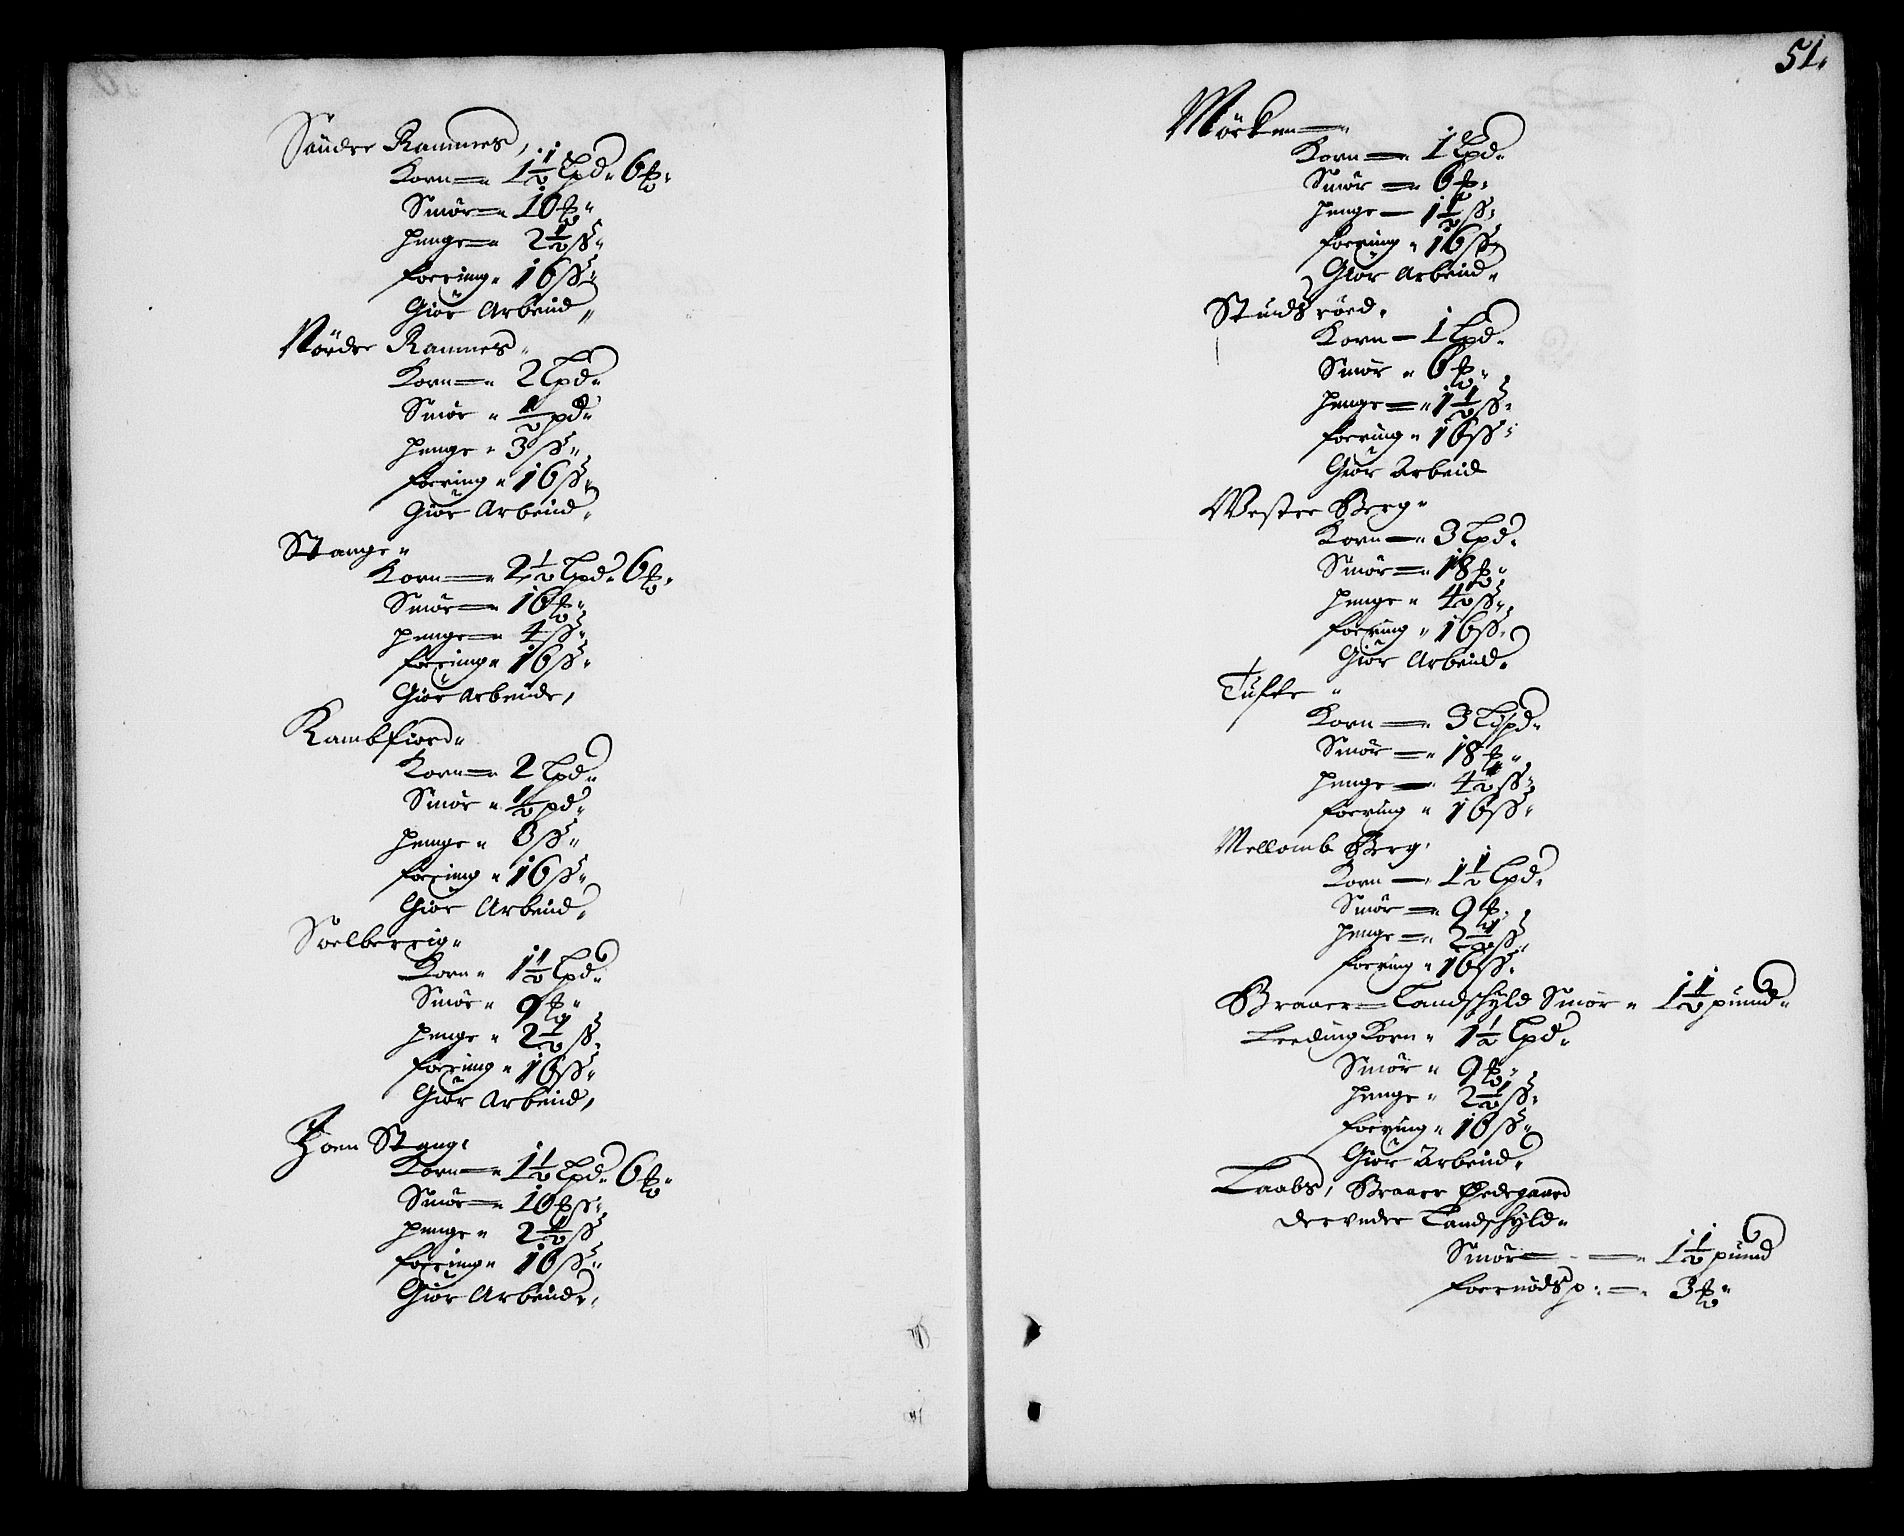 Söndre Rammes,
Korn = 1½ Lpd. 6 ℔.
Smör = 10 ℔.
penge = 2½ ß.
foering. 16 ß.
Giör Arbeid,
Nördre Rammes.
Korn = 2 Lpd.
Smör. ½ pd.
penge. 3 ß.
foering. 16 ß.
Giör Arbeid.
Stange.
Korn = 2½ Lpd. 6 ℔.
Smör = 16 ℔.
penge = 4 ß.
foering. 16 ß.
Giör Arbeide,
Kambfiord.
Korn = 2 Lpd.
Smör. ½ pd.
penge. 3 ß.
foering. 16 ß.
Giör Arbeid.
Soelberrig.
Korn. 1½ Lpd.
Smör. 9 ℔.
penge. 2½ ß.
foering. 16 ß.
Giör Arbeid,
Stang.
Korn = 1½ Lpd. 6 ℔.
Smör = 10 ℔.
penge. 2½ ß
foering. 16 ß.
Giör Arbeide.
51.
Mörken =
Korn = 1 Lpd.
Smör = 6 ℔.
penge = 1½ ß.
foering. 16 ß,
Giör Arbeid.
Studsröed.
Korn = 1 Lpd.
Smör. 6 ℔.
penge = 1½ ß.
foering. 16 ß.
Giör Arbeid
Wester Berg.
Korn = 3 Lpd.
Smör = 18 ℔.
penge. 4½ ß.
foering. 16 ß.
Giör Arbeid.
Tufte.
Korn = 3 Lispd.
Smör = 18 ℔.
penge = 4½ ß.
foering. 16 ß.
Mellomb Berg.
Korn = 1½ Lpd.
Smör = 9 ℔.
penge = 2½ ß.
foering. 16 ß.
Braaer = Landschyld Smör. 1½ puund.
Leeding Korn. 1½ Lpd.
Smör. 9 ℔.
penge. 2½ ß.
foering. 16 ß.
Giör Arbeid.
Laabs, Braaer Ödegaard
derunder Landschyld.
Smör = 1½ puund
foernödsp: = 3 ℔.